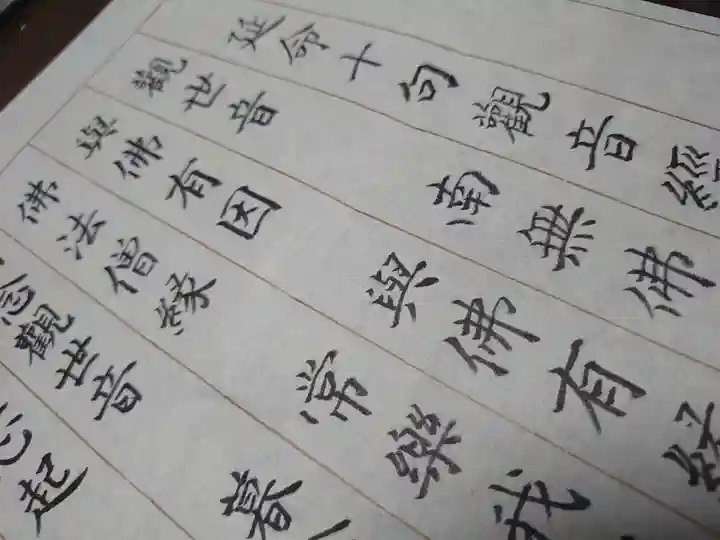 延命十句觀音經
觀世音 南無佛
與佛有因 與佛有緣
佛法僧緣 常樂我
念觀世音 暮
心起